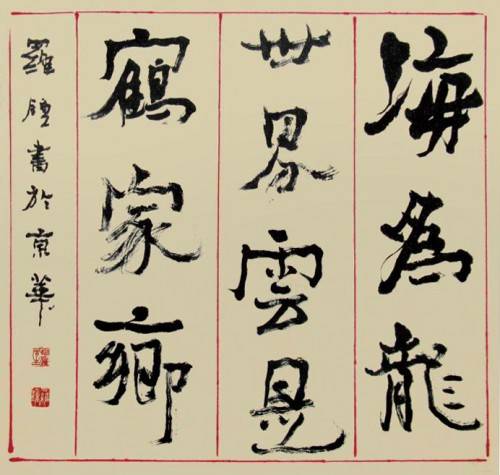 海為龍
世界雲是
鶴家鄉
羅書於京華